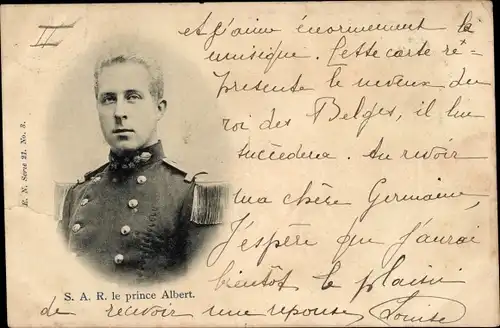 II
et j'aime énormement la
musique. Cette carte re-
présente le neveux du
roi des Belges, il lui
succèdera. Au revoir
ma chère Germaine,
J'espère que j'aurai
bientôt le plaisir
de recevoir une réponse Louise
E. N. Série 21. No. 3.
S. A. R. le prince Albert.